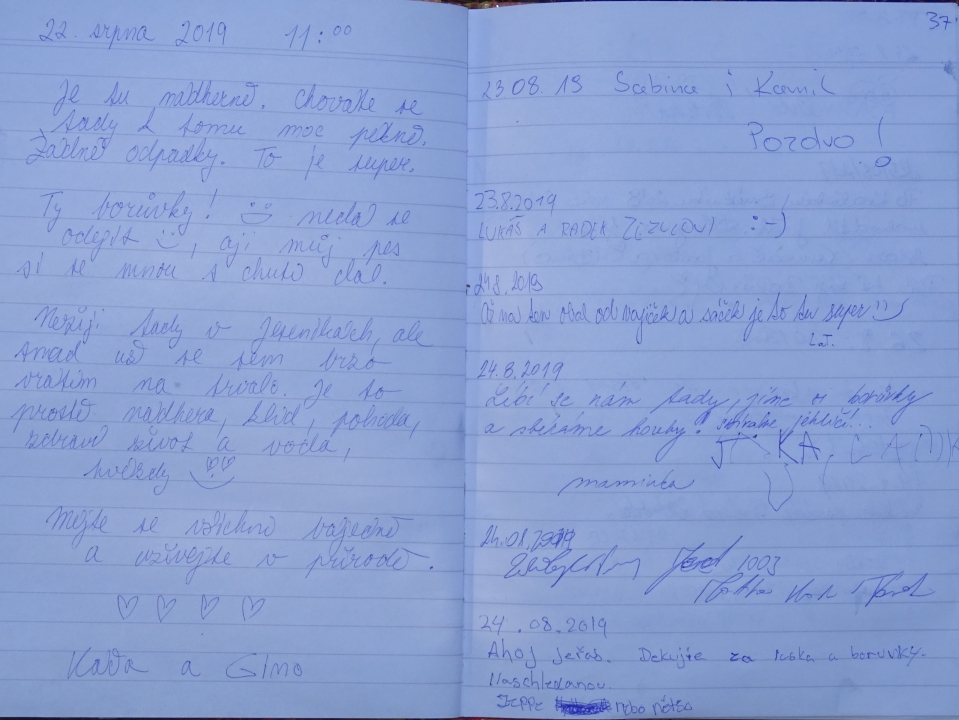 22. srpna 2019 11:00
Je tu nádherně. Chováte se
tady k tomu moc pěkně.
Žádné odpadky. To je super.
Ty borůvky! nedal se
odejít, aji můj pes
si se mnou s chutí dal.
Nežiji tady v Jeseníkách, ale
snad už se sem brzo
vrátím na trvalo. Je to
prostě nádhera, klid, pohoda,
zdravý život a voda,
hvězdy
Mějte se všichni báječně
a užívejte v přírodě.
Kaťa a Gino
37
23.08.19 Sabina i Kamil
Pozdro!
23.8.2019
LUKÁŠ A RADEK :-)
24.8.2019
Až na ten obal od vajíček a sáček je to tu super!!
24.8.2019
Líbí se nám tady, jíme borůvky
a sbíráme houby. sbíráme jehličí!..
maminka
24.08.2019
1003
24.08.2019
Ahoj Jeřáb. Dekujite za luska a boruvky.
Naschledanou
Jeppe nebo něťso